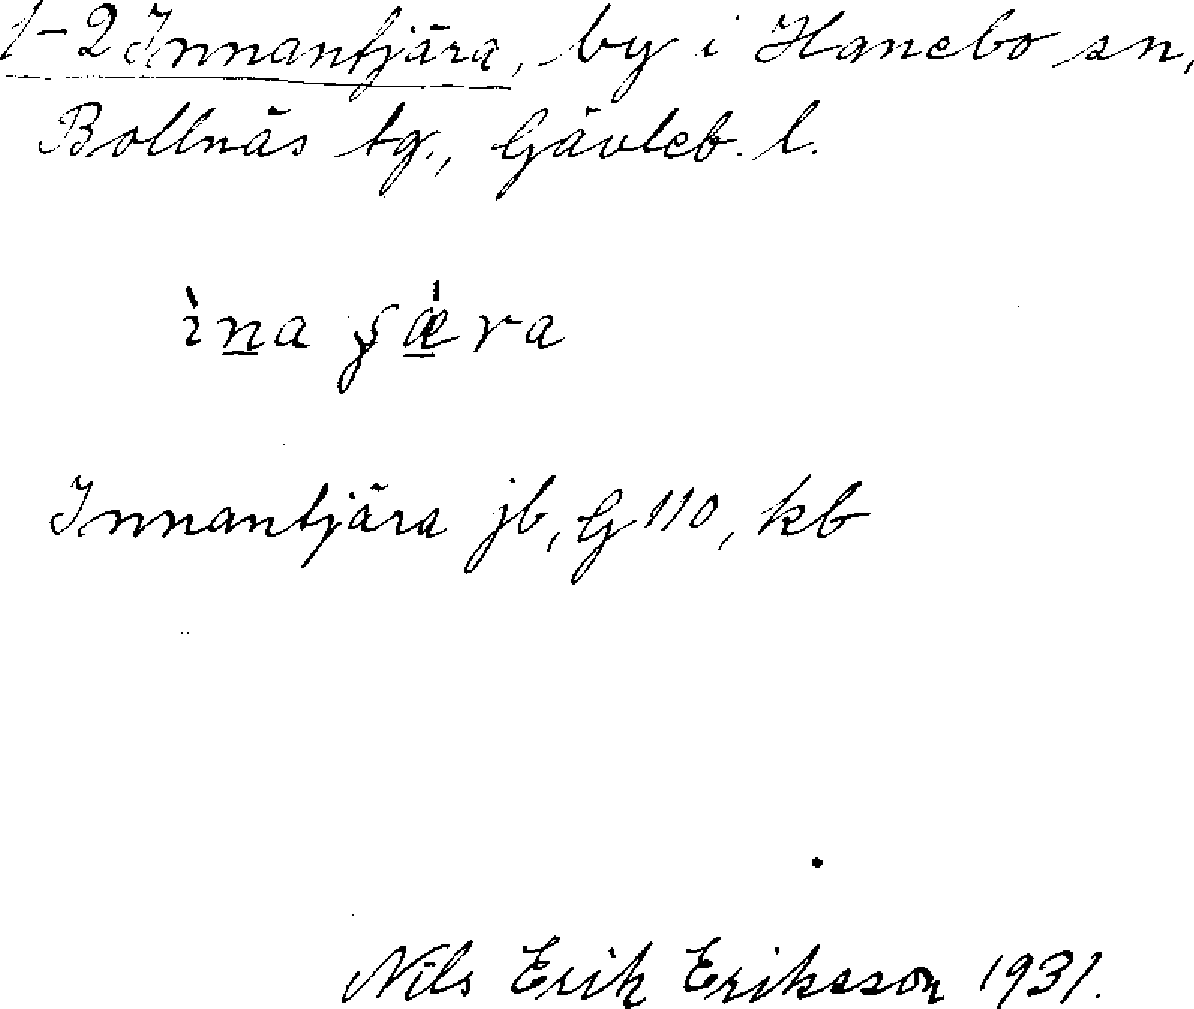 1-2 Innantjära, by i Hanebo sn,
Bollnäs tg., Gävleb. l.
ìna ʂæ̍ra
Innantjära jb, G 110, kb
Nils Erik Eriksson 1931.